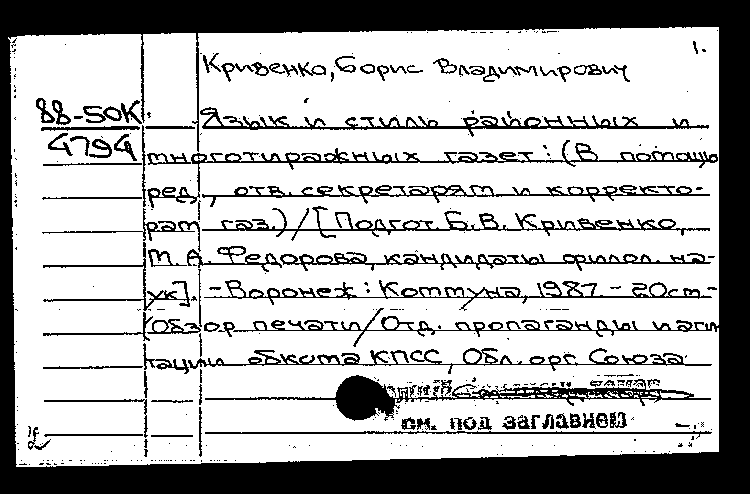 1.
Кривенко, Борис Владимирович
88-50К
4794
Язык и стиль районных и
многотиражных газет: (В помощь
ред., отв. секретарям и корректо-
рам газ.) / [Подгот. Б.В. Кривенко,
М.А. Федорова, кандидаты филол. на-
ук]. - Воронеж: Коммуна, 1987. - 20см -
(Обзор печати / Отд. пропаганды и аги
тации обкома КПСС, Обл. орг. Союза
см. под заглавием